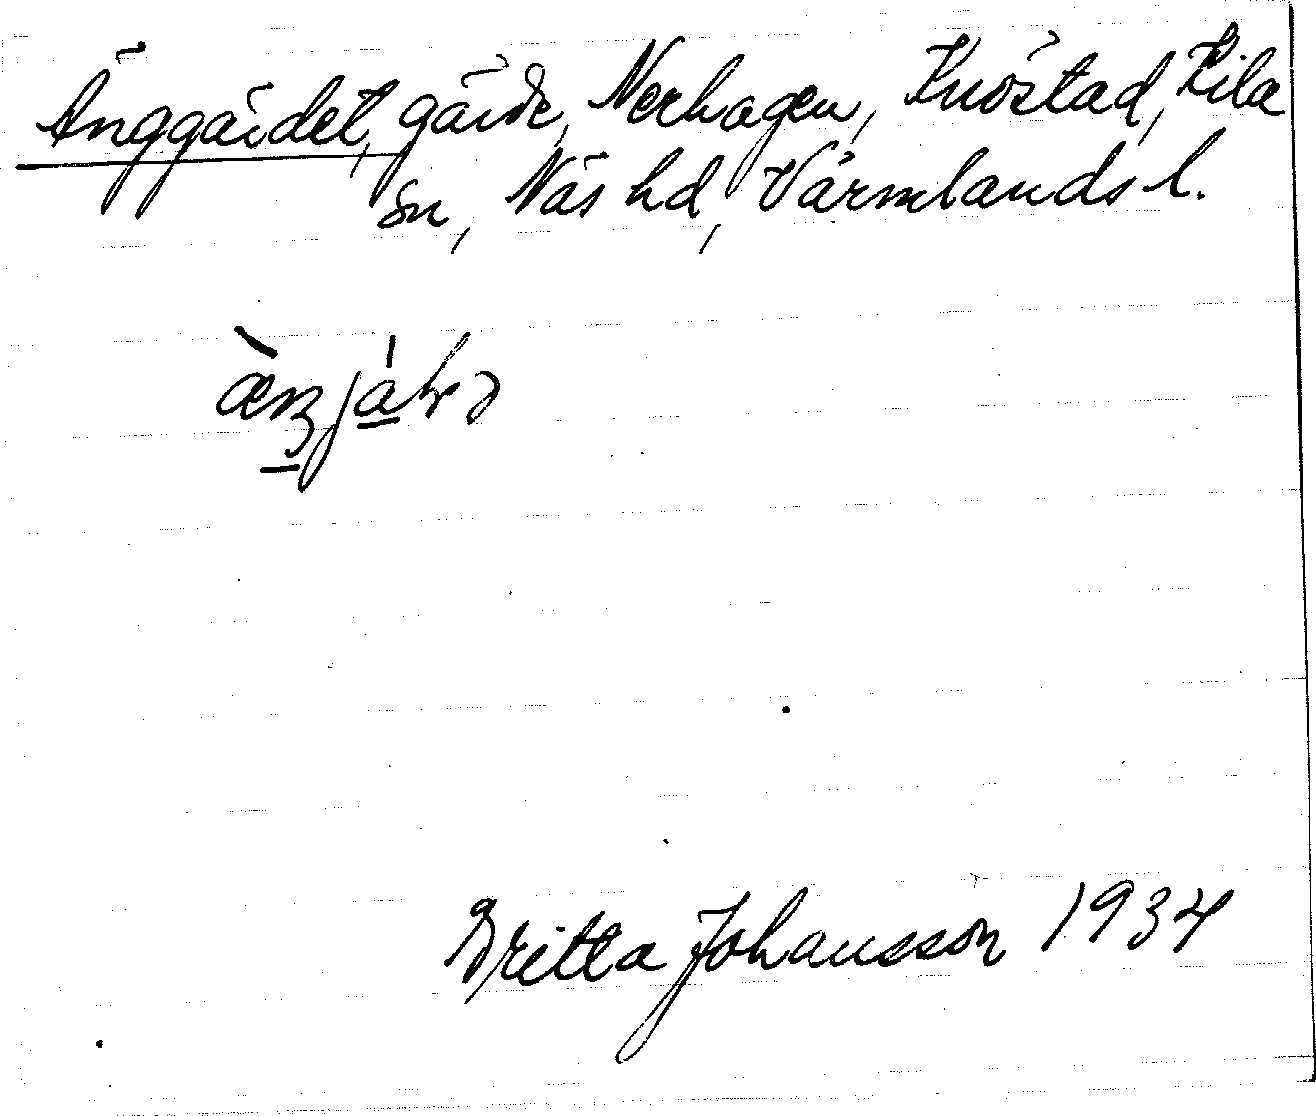 Änggärdet, gärde, Nerhagen, Knöstad, Kila
sn, Näs hd, Värmlands l.
Britta Johansson 1934